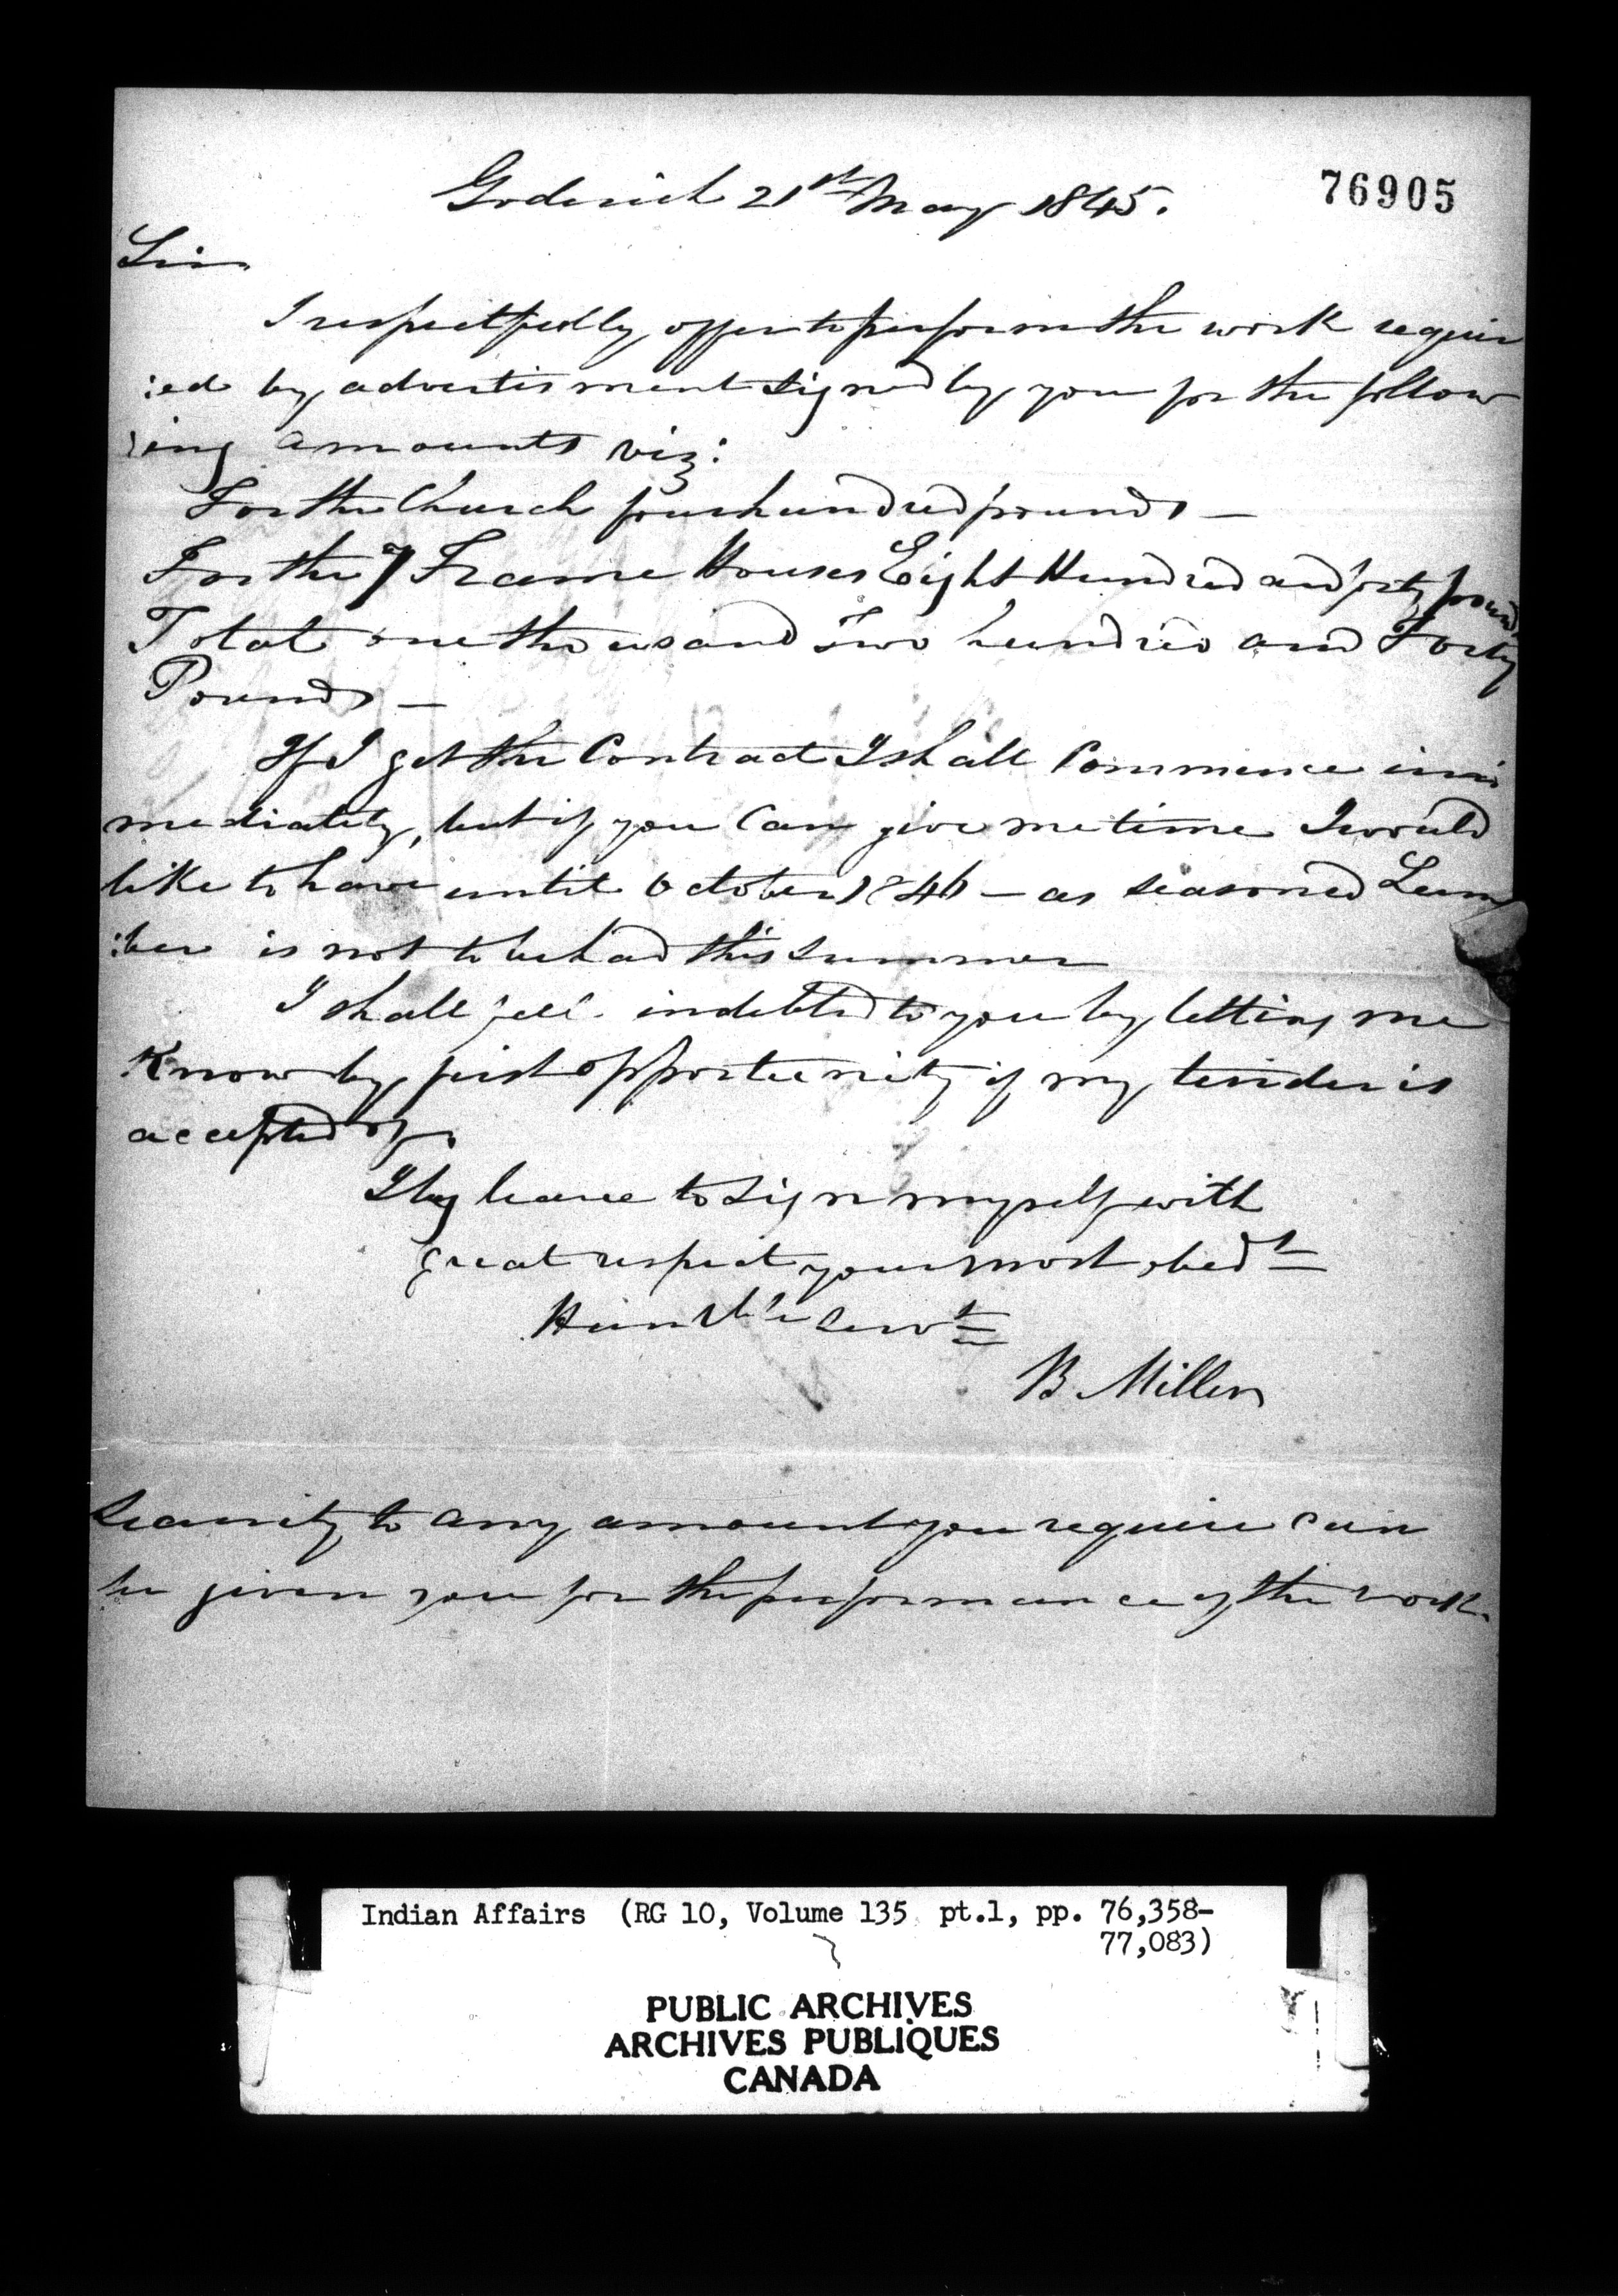 76905
Goderich 21st May 1845.
Sir
I respectfully offer to perform the work requir
:ed by advertisment signed by you for the follow
:ing amounts viz:
For the Church four hundred pounds —
For the 7 Frame Houses Eight Hundred and forty pounds
Total one thousand Two hundred and Forty
Pounds —
If I get the Contract I shall Commence im
mediately, but if you Can give me time I would
like to have until October 1846 — as seasoned Lum
:ber is not to be had this summer
I shall feel indebted to you by letting me
Know by first opportunity if my tender is
accepted of.
I beg leave to sign myself with
great respect your most obedt
Humble Servt
B. Miller
Security to any amount you require can
be given you for the performance of the work.
Indian Affairs (RG 10, Volume 135 pt.1, pp. 76,358-
77,083)
PUBLIC ARCHIVES
ARCHIVES PUBLIQUES
CANADA